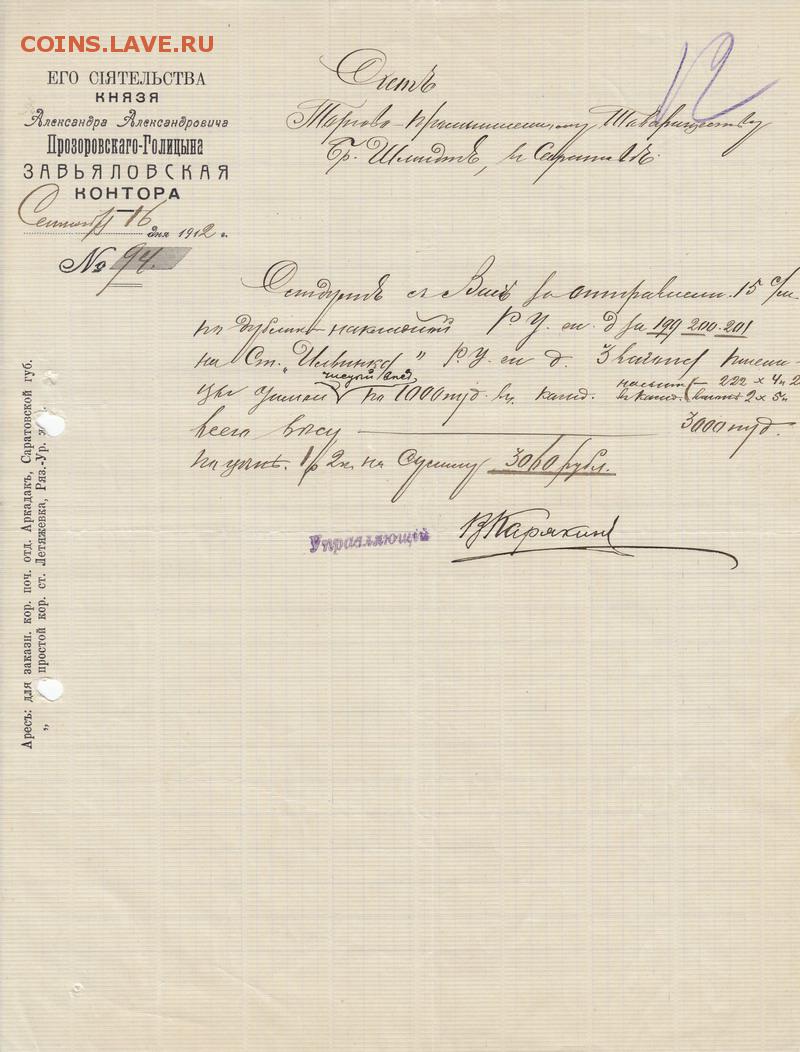 COINS.LAVE.RU
ЕГО СІЯТЕЛЬСТВА
КНЯЗЯ
Александра Александровича
Прозоровскаго-Голицына
ЗАВЬЯЛОВСКАЯ
КОНТОРА
16 дня 1912 г.
№ 94.
12
Счетъ
Торгово-промышленному Товариществу
Бр. Шмидтъ, въ Саратовѣ.
Слѣдуетъ съ Васъ за 15 с/м.
по дубликат. накладной Р. У. ж. д. за 199 200. 201
на Ст. „ " Р. У. ж. д. 3 вагона пшени-
цы чистый вѣсъ по 1000 пуд. въ кажд. 222 х 4 п 2
въ кажд. 2 х 5 п
всего вѣсу 3000 пуд.
по цѣнѣ. на Сумму 3060 рубл.
Управляющій В Карякинъ
Аресъ: для заказн. кор. поч. отд. Аркадакъ, Саратовской губ.
„ простой кор. ст. Летяжевка, Ряз.-Ур.